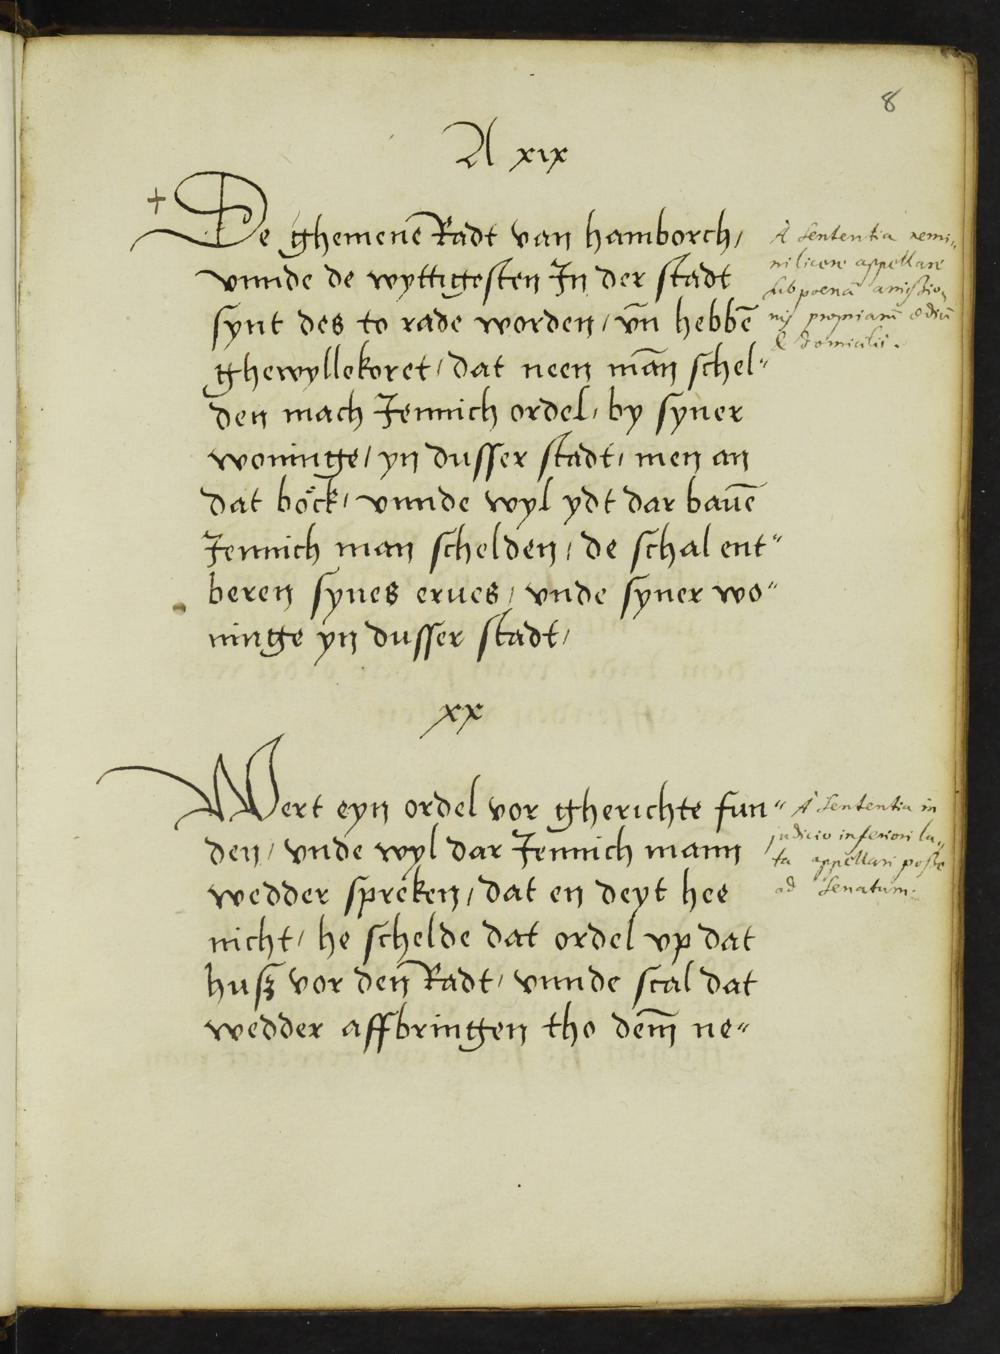 8
A xix
+ De ghemene Radt van hamborch/
vnnde de wyttigesten In der stadt
synt des to rade worden/ vn̄ hebbē
ghewyllekoret/ dat neen mān schel"
den mach Jennich ordel/ by syner
woninge/ yn dusser stadt/ men an
dat böck/ vnnde wyl ydt dar bauē
Jennich man schelden/ de schal ent"
beren synes erues/ vnde syner wo"
ninge yn dusser stadt/
A Sententia nemi„
ni licere appellare
sub poenā amissio„
nis propriarū ædiū
& domicilii.
xx
Wert eyn ordel vor gherichte fun"
den/ vnde wyl dar Jennich mann
wedder spreken/ dat en deyt hee
nicht/ he schelde dat ordel vp dat
husz vor den Radt/ vnnde scal dat
wedder affbringen tho dem̄ ne"
A Sententia in
judicio inferiori la„
ta appellari posse
ad Senatum.